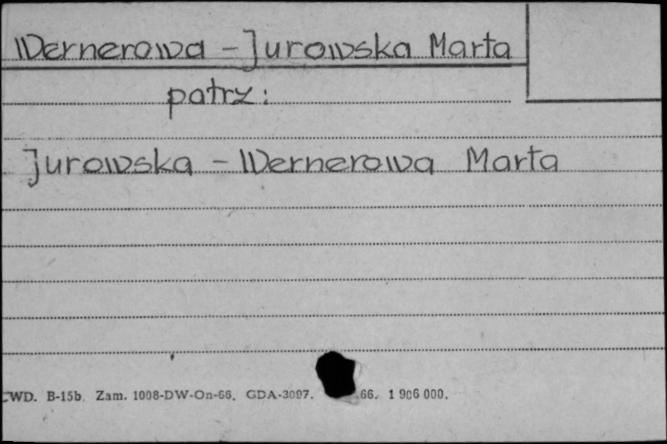 Wernerowa - Jurowska Marta
patrz:
Jurowska - Wernerowa Marta
CWD. B-15b. Zam. 1008-DW-On-66. GDA-3097. 66. 1 906 000.